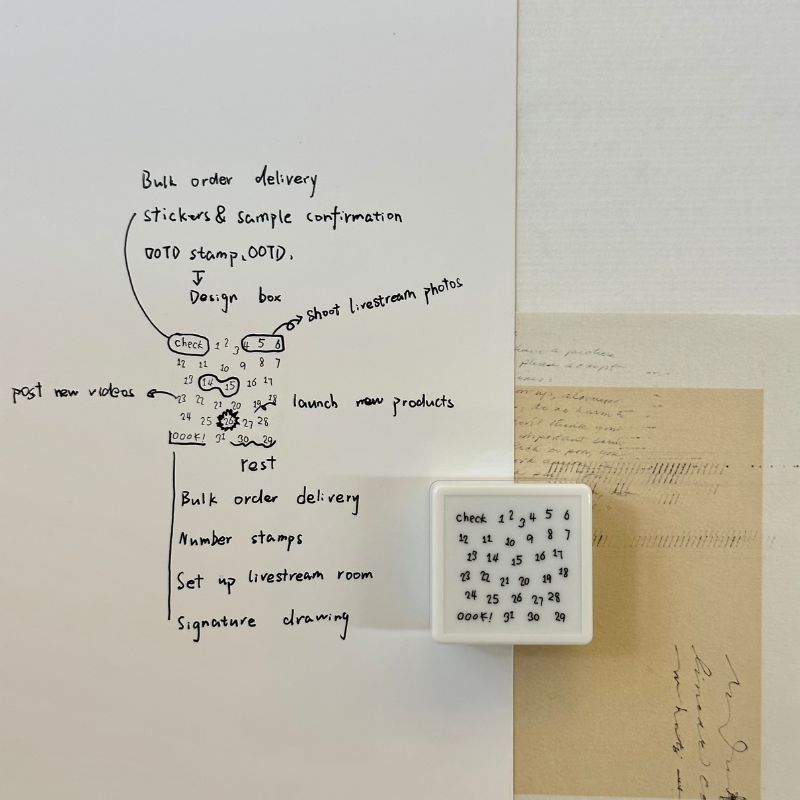 Bulk order delivery
stickers & sample confirmation
OOTD stamp、OOTD.
Design box
shoot livestream photos
check 1 2 3 4 5 6
12 11 10 9 8 7
13 14 15 16 17
post new videos
23 22 21 20 19 18
launch new products
24 25 26 27 28
OOOK! 31 30 29
rest
Bulk order delivery
Number stamps
Set up livestream room
Signature drawing
check 1 2 3 4 5 6
12 11 10 9 8 7
13 14 15 16 17
23 22 21 20 19 18
24 25 26 27 28
OOOK! 31 30 29